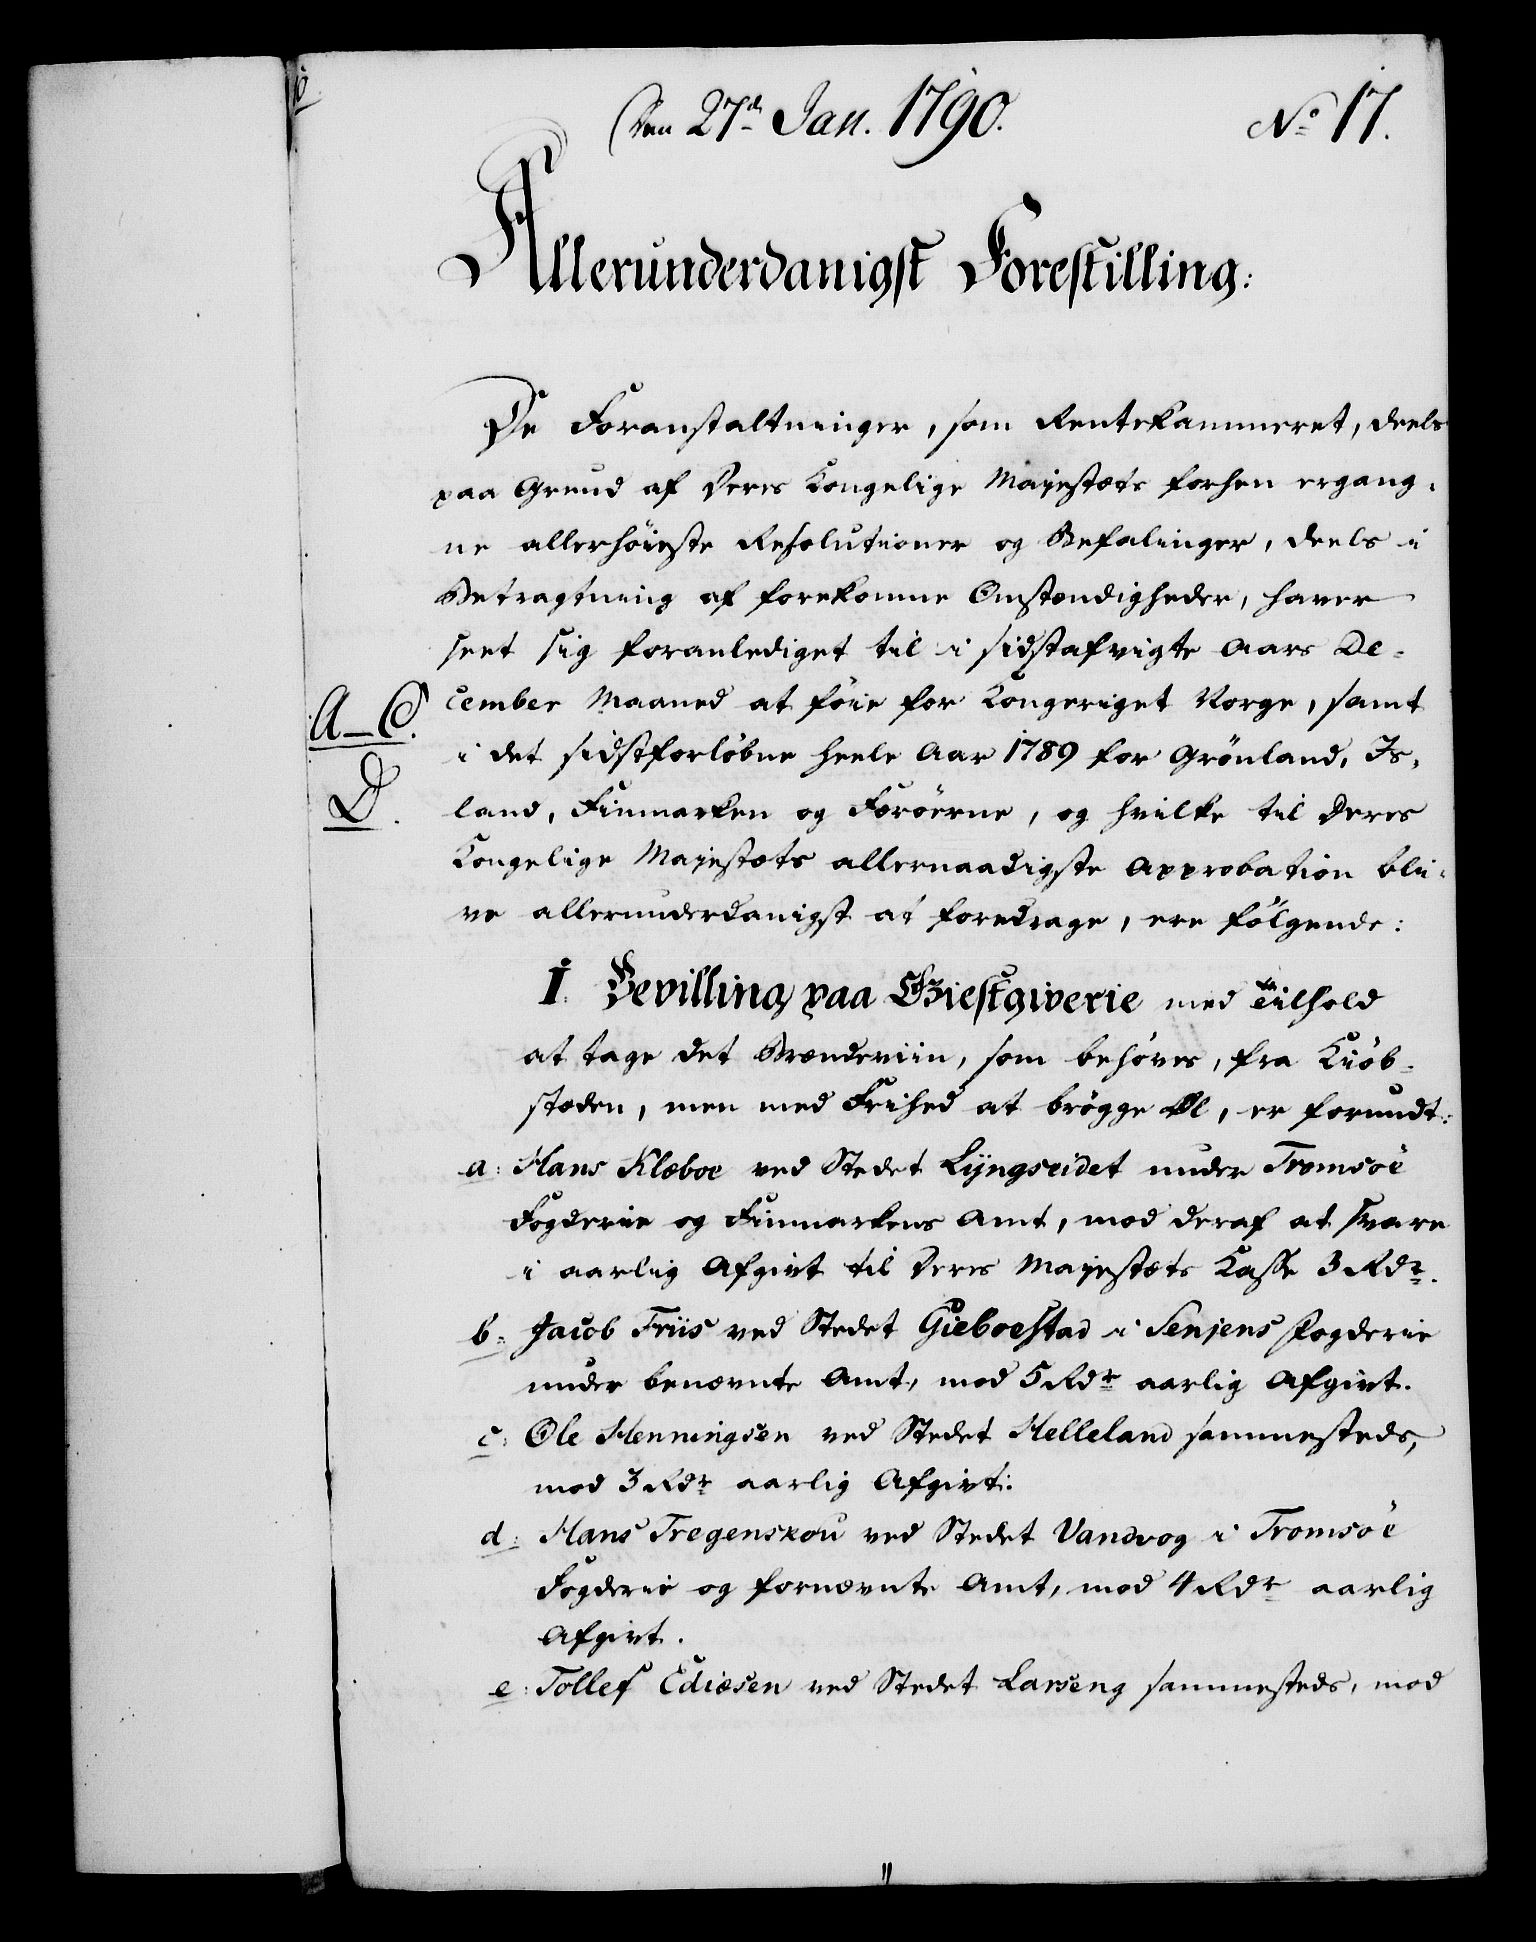 Den 27d Jan. 1790.
No 17.
Allerunderdanigst Forestilling:
De Foranstaltninger, som Rentekammeret, deels
paa Grund af Deres Kongelige Majestæts forhen ergang-
ne allerhöieste Resolutioner og Befalinger, deels i
Betragtning af forekomne Omstændigheder, haver
seet sig foranlediget til i sidstafvigte Aars De-
cember Maaned at föie for Kongeriget Norge, samt
A–C.
i det sidstforløbne heele Aar 1789 for Grönland, Is-
D.
land, Finmarken og Færöerne, og hvilke til Deres
Kongelige Majestæts allernaadigste Approbation bli-
ve allerunderdanigst at foredrage, ere fölgende:
I. Bevilling paa Giestgiverie med Tilhold
at tage det Brændeviin, som behöves, fra Kiöb-
stæden, men med Frihed at brögge Øl, er forundt:
a: Hans Klæboe ved Stedet Lyngseidet under Tromsöe
Fogderie og Finmarkens Amt, mod deraf at svare
i aarlig Afgivt til Deres Majestæts Kasse 3 Rdr.
b: Jacob Friis ved Stedet Gieboestad i Senjens Fogderie
under benævnte Amt, mod 5 Rdr aarlig Afgivt.
c: Ole Henningsen ved Stedet Helleland sammesteds,
mod 3 Rdr aarlig Afgivt:
d: Hans Fregenskou ved Stedet Vandvog i Tromsöe
Fogderie og fornævnte Amt, mod 4 Rdr aarlig
Afgivt.
e: Tollef Ediæsen ved Stedet Larseng sammesteds, mod